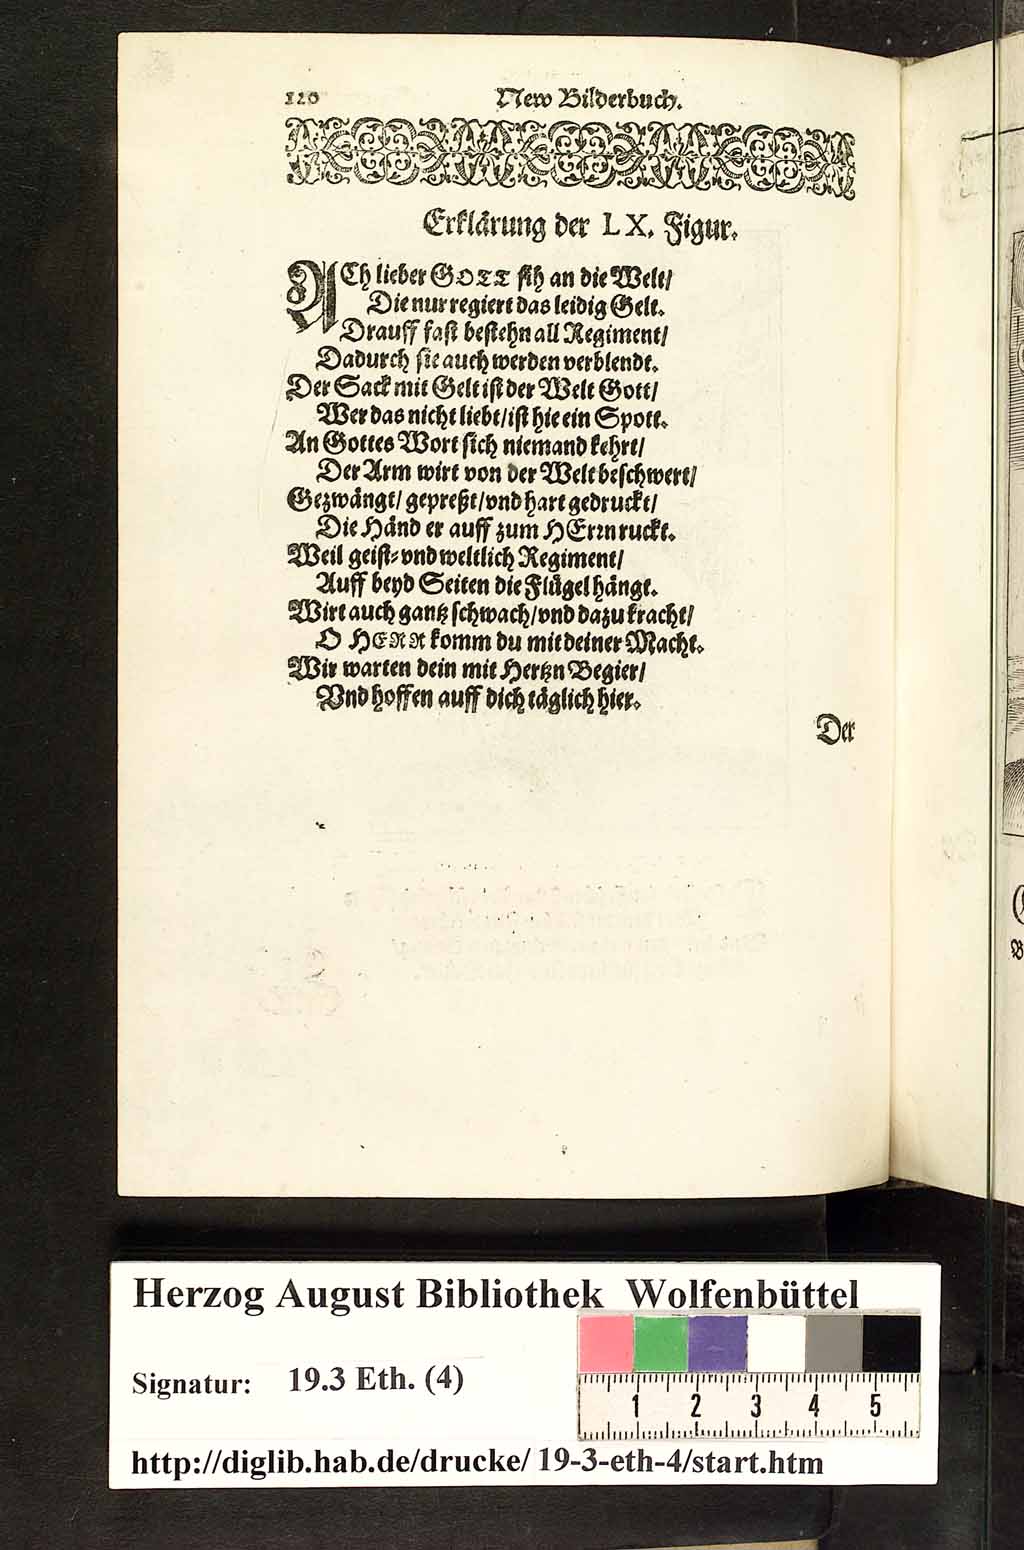 120 New Bilderbuch.
Erklärung der LX. Figur.
ACh lieber GOTT sih an die Welt/
Die nur regiert das leidig Gelt.
Drauff fast bestehn all Regiment/
Dadurch sie auch werden verblendt.
Der Sack mit Gelt ist der Welt Gott/
Wer das nicht liebt/ ist hie ein Spott.
An Gottes Wort sich niemand kehrt/
Der Arm wirt von der Welt beschwert/
Gezwängt/ gepreßt/ vnd hart gedruckt/
Die Händ er auff zum HErrn ruckt.
Weil geist- vnd weltlich Regiment/
Auff beyd Seiten die Flügel hängt.
Wirt auch gantz schwach/ vnd dazu kracht/
O HERR komm du mit deiner Macht.
Wir warten dein mit Hertzn Begier/
Vnd hoffen auff dich täglich hier.
Der
Herzog August Bibliothek Wolfenbüttel
Signatur: 19.3 Eth. (4)
1 2 3 4 5
http://diglib.hab.de/drucke/ 19-3-eth-4/start.htm